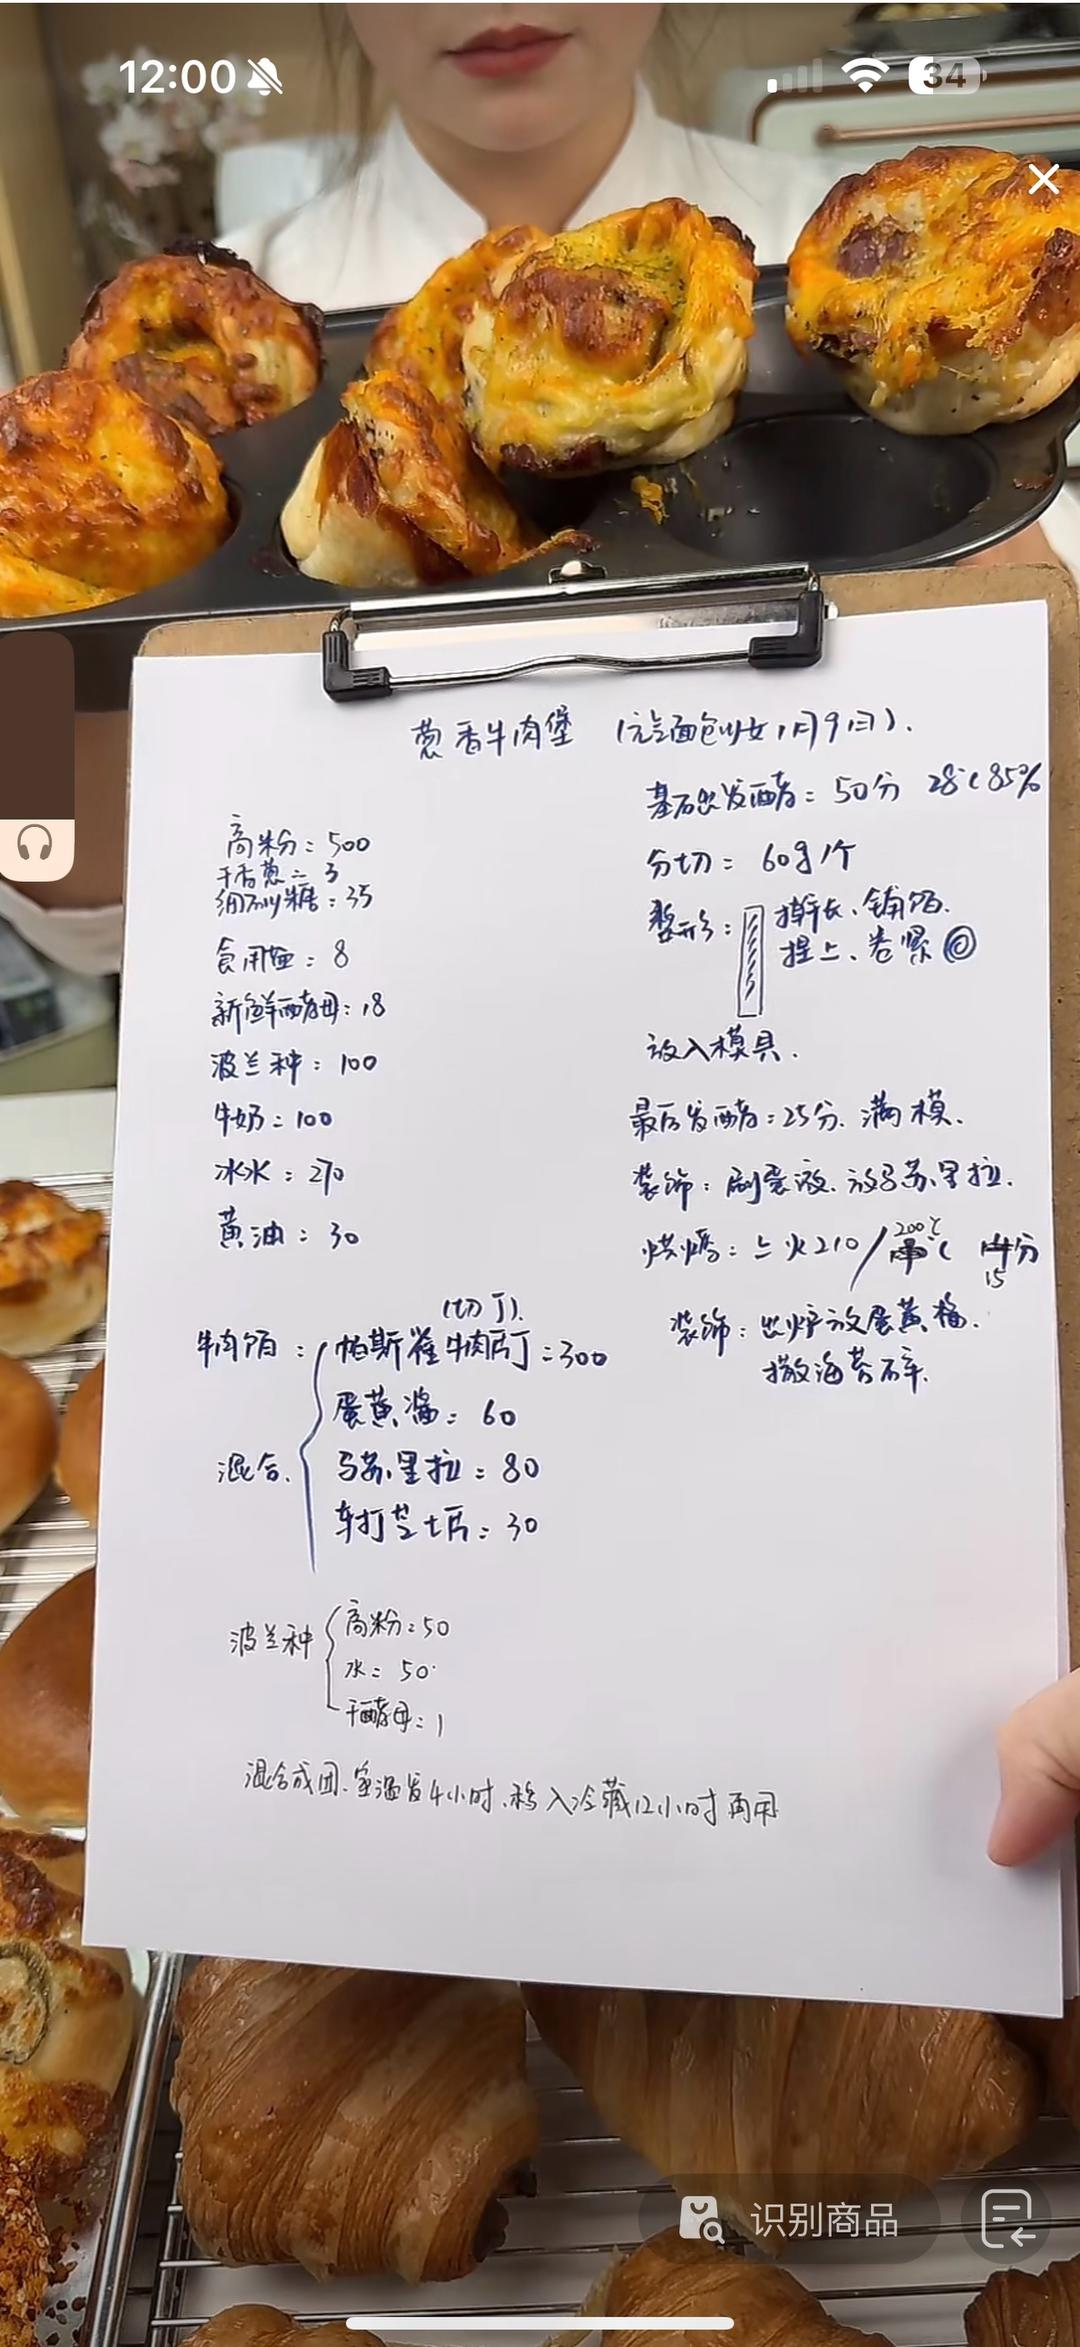 12:00
34
葱香牛肉堡 (元气面包少女1月9日).
高粉:500
干香葱:3
细砂糖:35
食用盐:8
新鲜酵母:18
波兰种:100
牛奶:100
冰水:270
黄油:30
牛肉馅:
混合.
(切丁).
帕斯雀牛肉丁=300
蛋黄酱:60
马苏里拉:80
车打芝士片:30
波兰种
高粉:50
水:50
干酵母:1
混合成团.室温发4小时.移入冷藏12小时再用
基础发酵:50分 28℃85%
分切:60g/个
整形:擀长、铺馅.
捏上、卷紧
放入模具.
最后发酵:25分.满模.
装饰:刷蛋液.放马苏里拉.
烘烤:上火210/200℃ 15分
装饰:出炉放蛋黄酱.
撒海苔碎.
识别商品